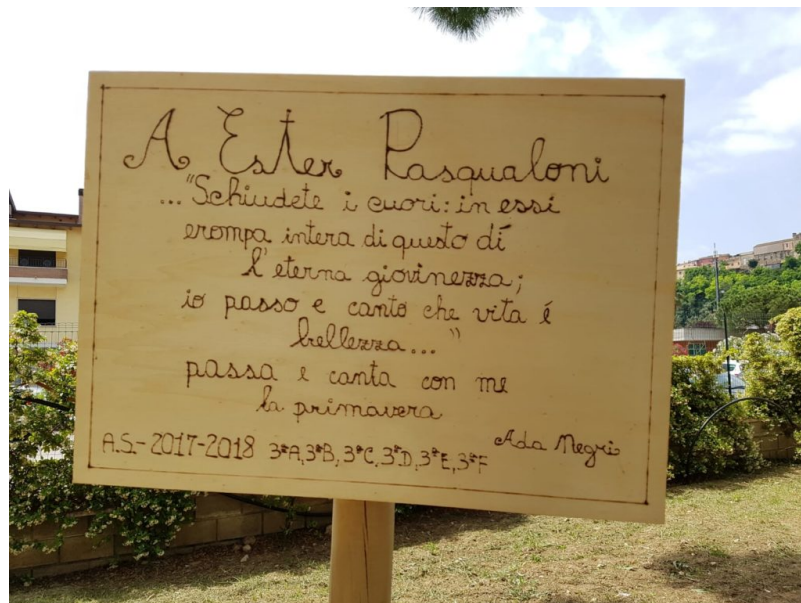 A Ester Pasqualoni
..."Schiudete i cuori: in essi
erompa intera di questo dí
l'eterna giovinezza;
io passo e canto che vita é
bellezza..."
passa e canta con me
la primavera
Ada Negri
A.S.-2017-2018 3ªA,3ªB,3ªC,3ªD,3ªE,3ªF